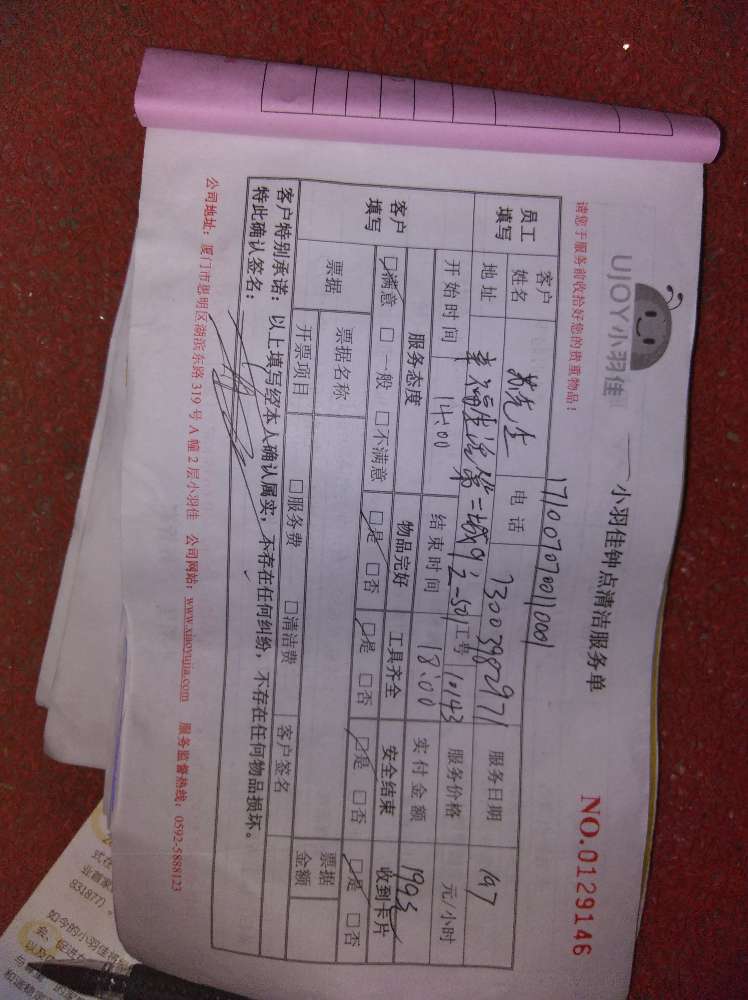 UJOY小羽佳
——小羽佳钟点清洁服务单
请您于服务前收拾好您的贵重物品!
NO.0129146
17100707001 10001
员工填写
客户姓名 苏先生 电话 13003982971 服务日期 10.7
地址 幸福 第二城 2-501 工号 10143 服务价格 元/小时
开始时间 14:00 结束时间 18:00 实付金额 199.5
客户填写
服务态度 物品完好 工具齐全 安全结束 收到卡片
□满意 □一般 □不满意 □是 □否 □是 □否 □是 □否 □是 □否
票据 票据名称 票据金额
开票项目 □服务费 □清洁费 客户签名
客户特别承诺:以上填写经本人确认属实,不存在任何纠纷,不存在任何物品损坏。
特此确认签名:
公司地址:厦门市思明区湖滨东路319号A幢2层小羽佳 公司网站:www.xiaoyujia.com 服务监督热线:0592-5888123
式在
业首家
831877)。
如今的小羽佳将
会,促进
以及